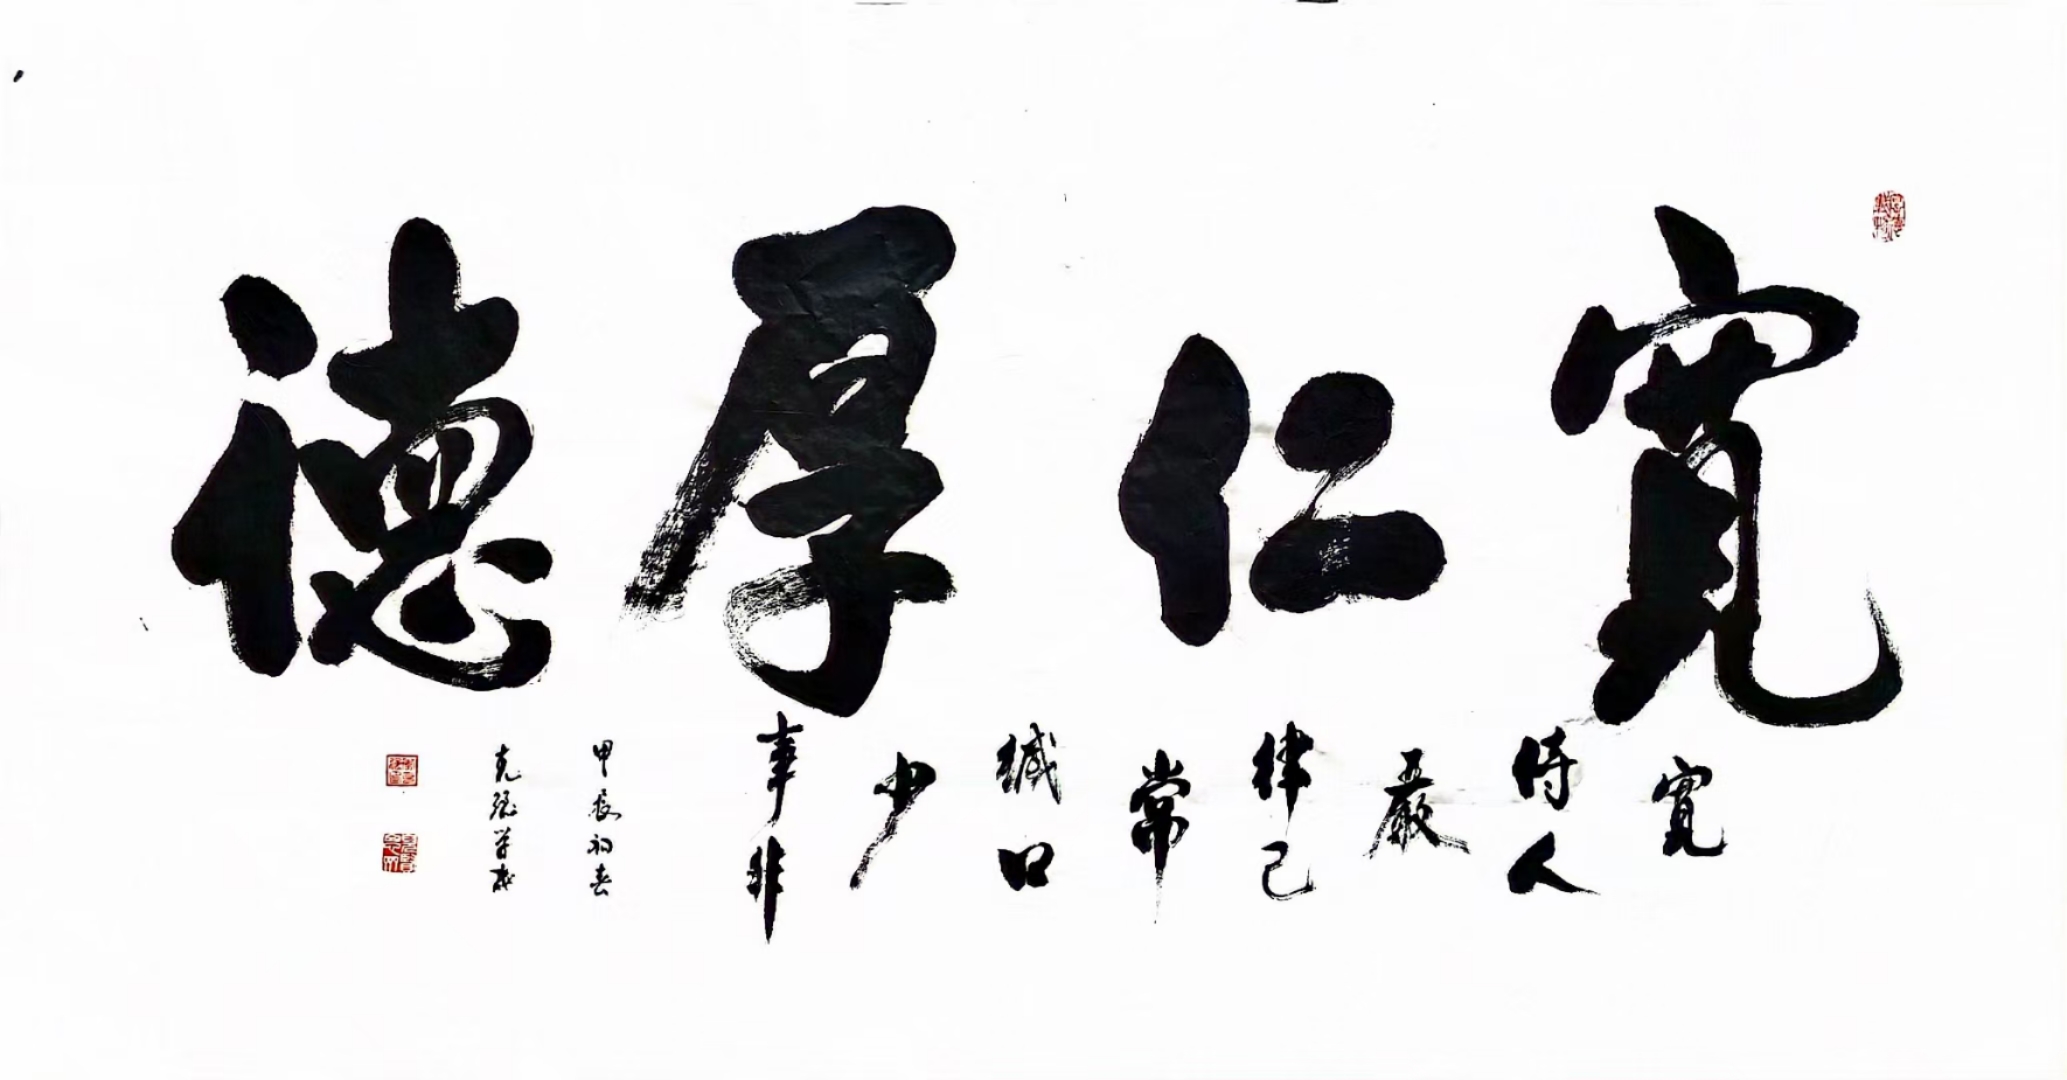 寬仁厚德
寬
待人
嚴
律己
常
緘口
少
事非
甲辰初春
克強草書